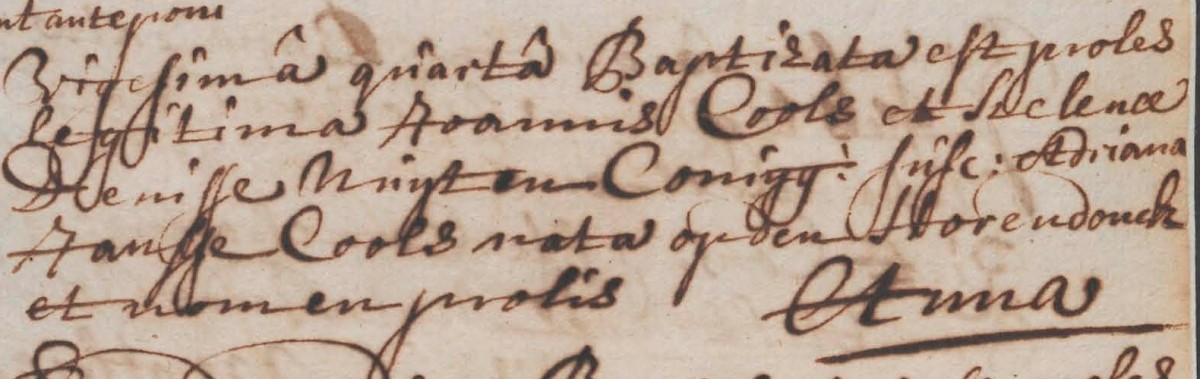 nt anteponi
Vigesimâ quartâ Baptizata est proles
legitima Joannis Cools et Helenæ
Denisse Nuyten Conigg: susc: Adriana
Jansse Cools nata op den Horendonck
et nomen prolis Anna